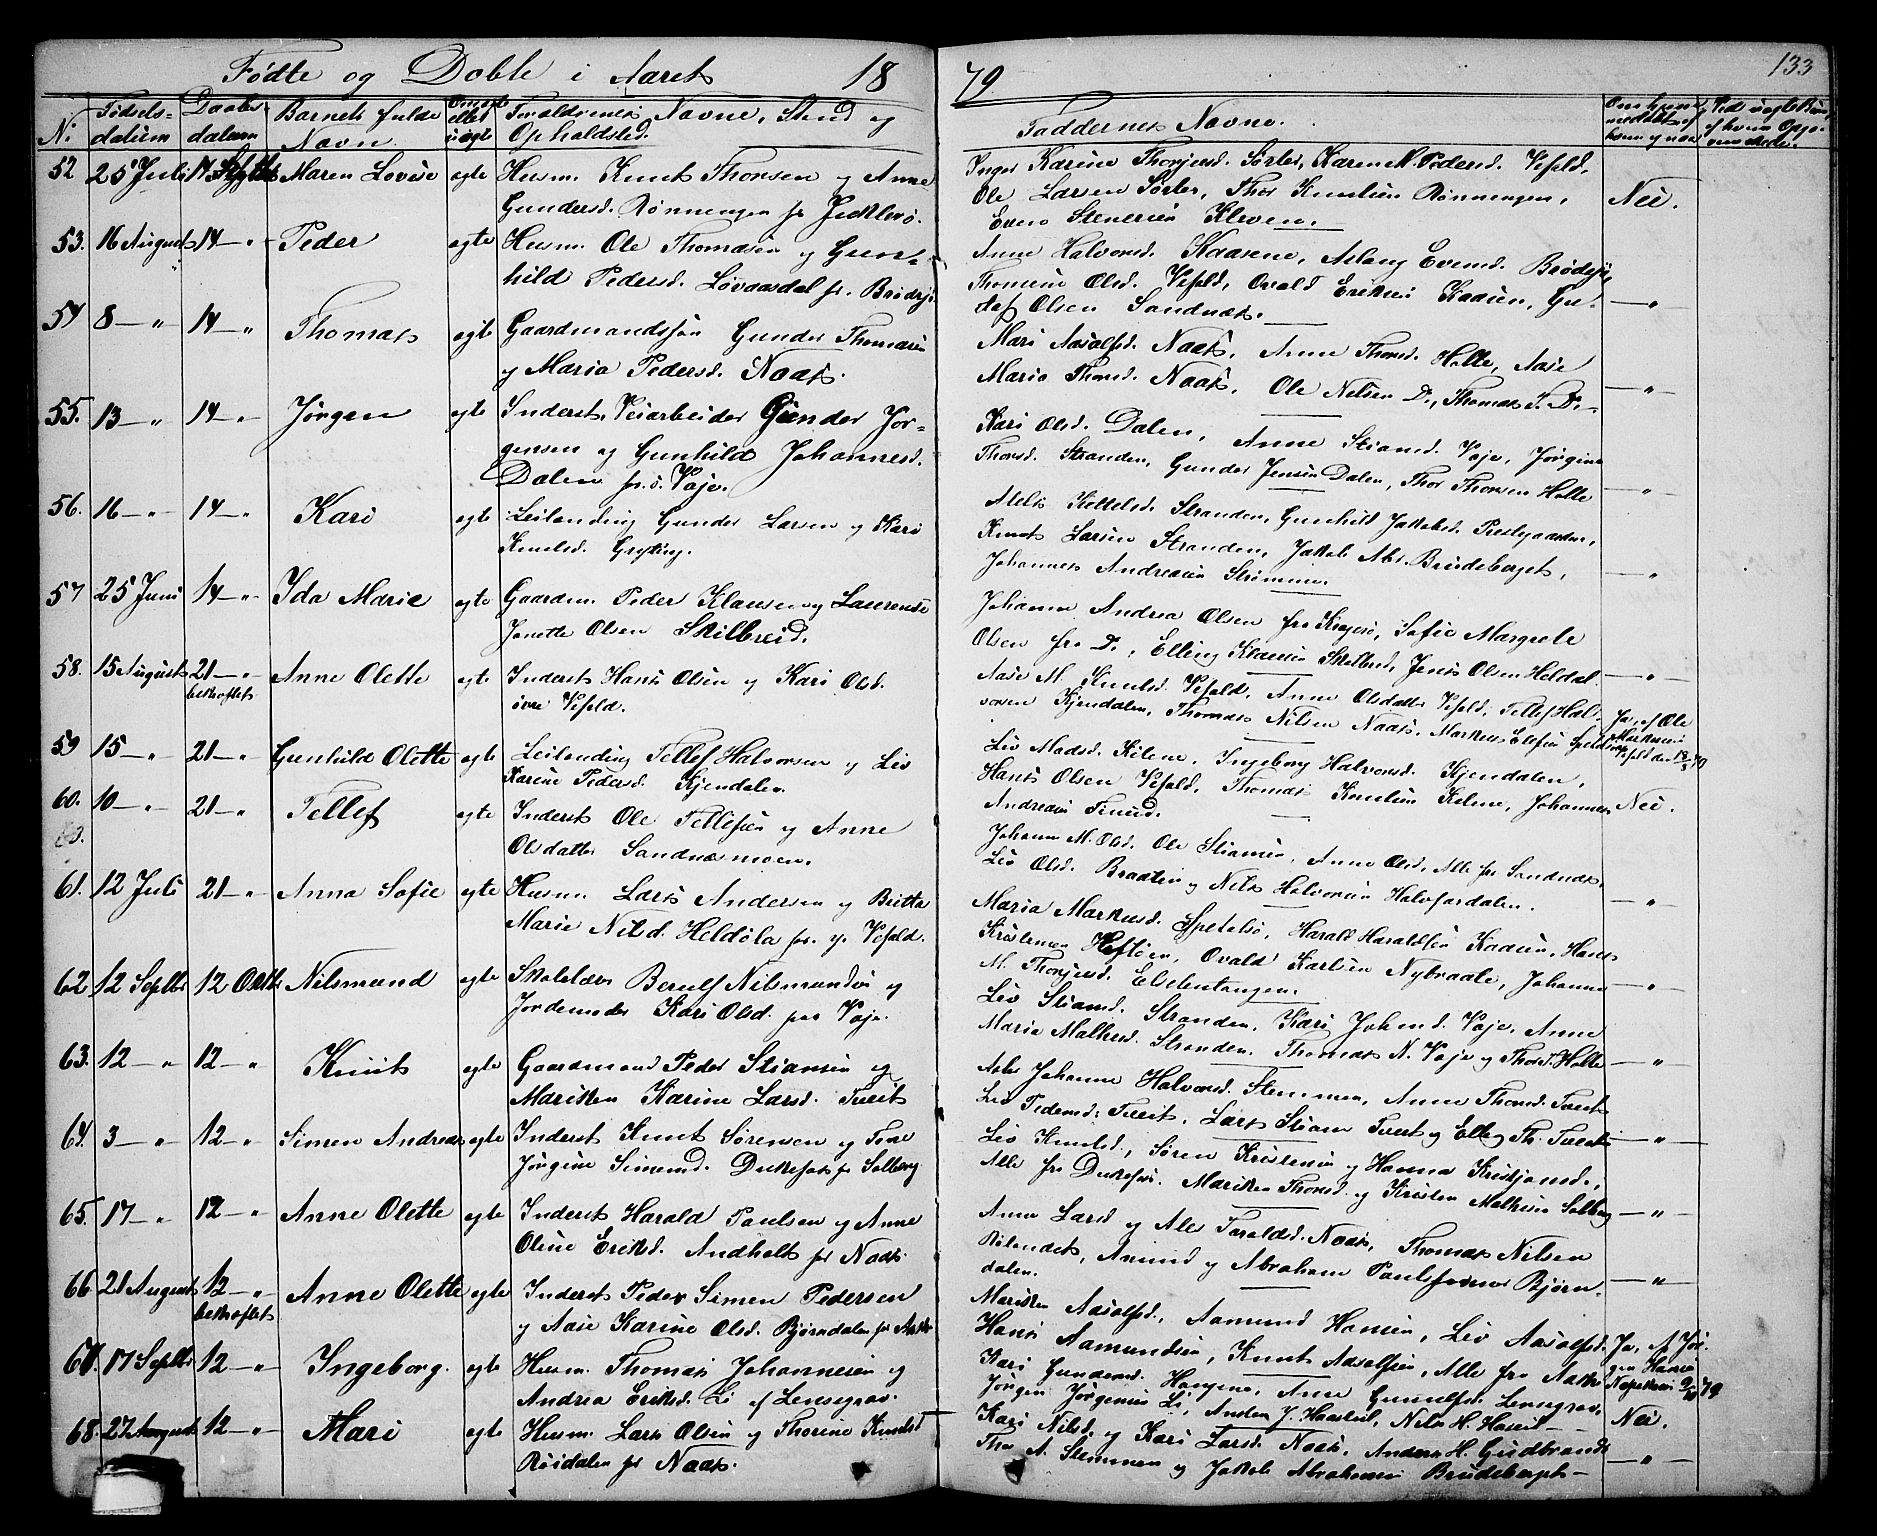 Fødte og Døbte i Aaret 18
79
133
N:
Fødsels-
datum
Daabs-
datum
Barnets fulde
Navn.
Om ægte
eller
uægte
Forældrenes Navne, Stand og
Opholdsted.
Faddernes Navne.
52 25 Juli 14 Septbr Maren Lovise egte Husm. Knut Thorsen og Anne
Gundersd. Rønningen fr
Inger Karine Thorjusd. Sørbø, Karen M. Pedersd. Vefald,
Ole Larsen Sørbø, Thor Knutsen Rønningen, Nei.
Even Stenersen Kleven.
53. 16 August 14 — " Peder egte Husm. Ole Thomasen og Gun-
hild Pedersd. Løvaasdal fr. Brødsjø
Anne Halvorsd. Kaasene, Aslaug Evensd. Brødsjø,
Thomine Olsd. Vefald, Ovald Eriksen Kaasen, Gu-
staf Olsen Sandnæs. — " —
54 8 — " 14 — " Thomas egte Gaardmandssøn Gunder Thomasen
og Maria Pedersd. Naas.
Mari Aasolfsd. Naas, Anne Thorsd. Holte, Aase
Maria Thorsd. Naas, Ole Nilsen D., Thomas T. D. — " —
55. 13 — " 14 — " Jørgen egte Inderst, Veiarbeider Gunder Jør-
gensen og Gunhild Johannesd.
Dalen fr. ø. Vaje.
Kari Olsd. Dalen, Anne Stiansd. Vaje, Jørgine
Thorsd. Stranden, Gunder Jensen Dalen, Thor Thorsen Holte — " —
56. 16 — " 14 — " Kari egte Leilending Gunder Larsen og Kari
Knutsd. Gryting.
Kittelsd. Stranden, Gunhild Jakobsd. Prestgaarden,
Knut Larsen Stranden, Jakob Abr. Brudeberget,
Johannes Andreasen Strømme. — " —
57 25 Juni 14 — " Ida Marie egte Gaardm. Peder Klausen og Laurense
Janette Olsen Skilbreid.
Johanne Andrea Olsen fra Kragerø, Sofie Margrete
Olsen fra D., Elling Klausen Skilbred, Jens Olsen Heldal. — " —
58. 15 August 21 — " Anne Olette egte Inderst Hans Olsen og Kari Olsd.
bekræftet øvre Vefald.
Aase M. Knutsd. Vefald, Anne Olsdatter Vefald, Tellef Hal-
vorsen Kjendalen, Thomas Nilsen Naas, Markus Elefsen
Ja, af Ole
Markusen
Vefald den
59 15 — " 21 — " Gunhild Olette egte Leilending Tellef Halvorsen og Liv
Karine Pedersd. Kjendalen.
Liv Madsd. Kilene, Ingeborg Halvorsd. Kjendalen,
Hans Olsen Vefald, Thomas Knutsen Kilene, Johannes Nei.
Andreasen
60. 10 — " 21 — " Tellef egte Inderst Ole Tellefsen og Anne
Olsdatter Sandnæsmoen.
Johanne M. Olsd. Ole Stiansen, Anne Olsd. Alle fr Sandnæs,
Liv Olsd. Braaten og Nils Halvorsen Halvfardalen. — " —
61. 12 Juli 21 — " Anna Sofie egte Husm. Lars Andersen og Britta
Marie Nilsd. Heldøla fr. y. Vefald.
Maria Markusd. Spetalsø, Harald Haraldsen Kaasen, Hans
Kristensen Heftøen, Ovald Karlsen Nybraate, Johanne
M. Thorjusd. Eidetangen. — " —
62 12 Septbr 12 Octbr Nilsmund egte Skolelærer Berulf Nilsmundsen og
Jordemoder Kari Olsd. paa Vaje.
Liv Stiansd. Stranden, Kari Johnsd. Vaje, Anne
Maria Mathisd. Stranden, Thomas N. Vaje og Thor T. Holte — " —
63. 12 — " 12 — " Knut egte Gaardmand Peder Stiansen og
Mariken Karine Larsd. Tveit
Johanne Halvorsd. Stemmen, Anne Thorsd. Tveit
Liv Pedersd. Tveit, Lars Stians. Tveit og Elling Th. Tveit — " —
64. 3 — " 12 — " Simen Andreas egte Inderst Knut Sørensen og Tone
Jørgine Simensd. Dukefos fr Solberg
Liv Knutsd., Søren Kristensen og Hanna Kristjansd.,
Alle fra Dukefos. Mariken Thorsd. og Kristen Mathisen Solberg — " —
65. 17 — " 12 — " Anne Olette egte Inderst Harald Paulsen og Anne
Oline Eriksd. Andholt fr Naas.
Anne Larsd. og Ales Taraldsd. Naas, Thomas Nilsen
Rølandet, Amund og Abraham Paulssønner Bjørn-
dalen. — " —
66 21 August 12 — " Anne Olette egte Inderst Peder Simen Pedersen
bekræftet og Aase Karine Olsd. Bjørndalen fr
Mariken Aasolfsd., Aamund Hansen, Liv Aasolfsd.
Hans Aamundsen, Knut Aasolfsen, Alle fra
Ja, af Jør-
gen Hansen
67. 17 Septbr 12 — " Ingeborg. egte Husm. Thomas Johannesen og
Andrea Eriksd. Li af Lensegrav.
Kari Gundersd. Haugene, Anne Gunulfsd. Lensegrav,
Jørgen Jørgensen Li, Anders J. Haaseid, Nils H. Haseid — Nei.
68. 27 August 12 — " Mari egte Husm. Lars Olsen og Thorine Knutsd
Røisdalen fr Naas.
Kari Nilsd. og Kari Larsd. Naas, Anders H. Gudbrands
Thor A. Stemmen og Jakob Abrahamsen Brudeberget — " —